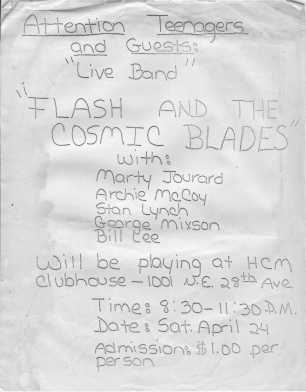 Attention Teenagers
and Guests:
"Live Band"
"FLASH AND THE
COSMIC BLADES"
with:
Marty Jourard
Archie McCoy
Stan Lynch
George Mixson
Bill Lee
Will be playing at HCM
clubhouse - 1001 N.E. 28th Ave
Time: 8:30-11:30 P.M.
Date: Sat. April 24
Admission: $1.00 per
person